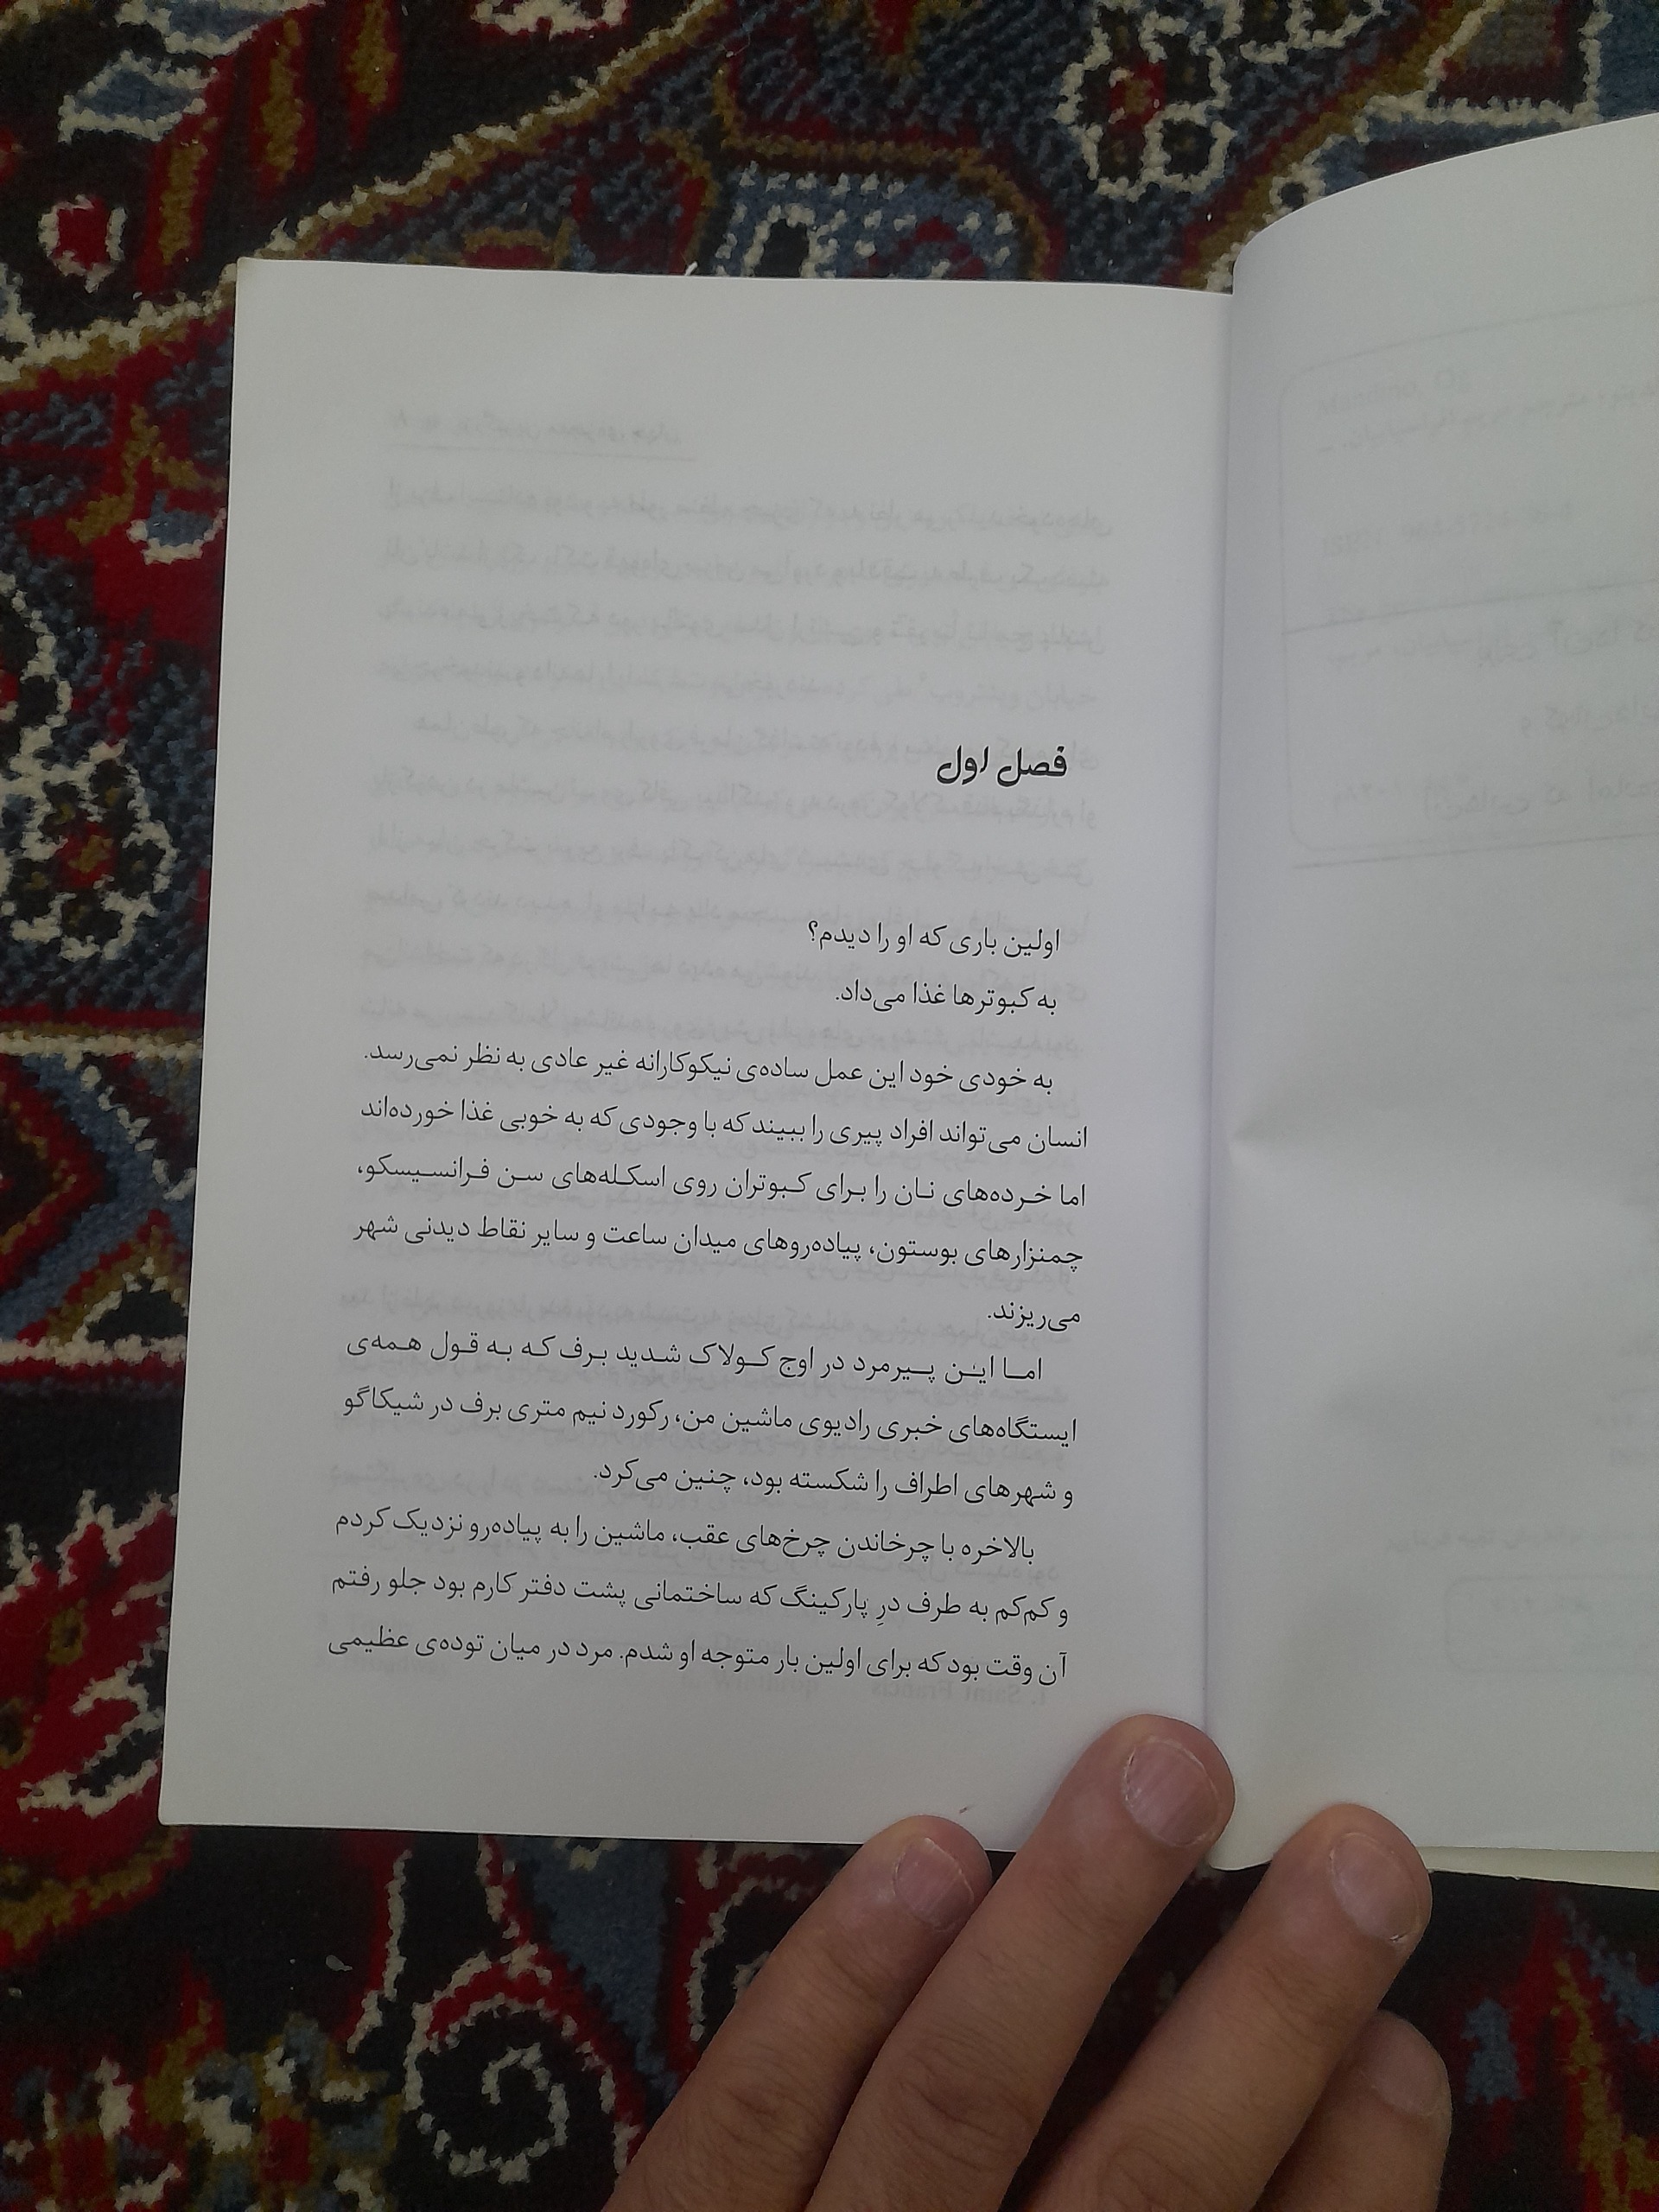 فصل اول
اولین باری که او را دیدم؟
به کبوترها غذا می‌داد.
به خودی خود این عمل ساده‌ی نیکوکارانه غیر عادی به نظر نمی‌رسد.
انسان می‌تواند افراد پیری را ببیند که با وجودی که به خوبی غذا خورده‌اند
اما خرده‌های نان را برای کبوتران روی اسکله‌های سن فرانسیسکو،
چمنزارهای بوستون، پیاده‌روهای میدان ساعت و سایر نقاط دیدنی شهر
می‌ریزند.
اما این پیرمرد در اوج کولاک شدید برف که به قول همه‌ی
ایستگاه‌های خبری رادیوی ماشین من، رکورد نیم متری برف در شیکاگو
و شهرهای اطراف را شکسته بود، چنین می‌کرد.
بالاخره با چرخاندن چرخ‌های عقب، ماشین را به پیاده‌رو نزدیک کردم
و کم‌کم به طرف درِ پارکینگ که ساختمانی پشت دفتر کارم بود جلو رفتم
آن وقت بود که برای اولین بار متوجه او شدم. مرد در میان توده‌ی عظیمی